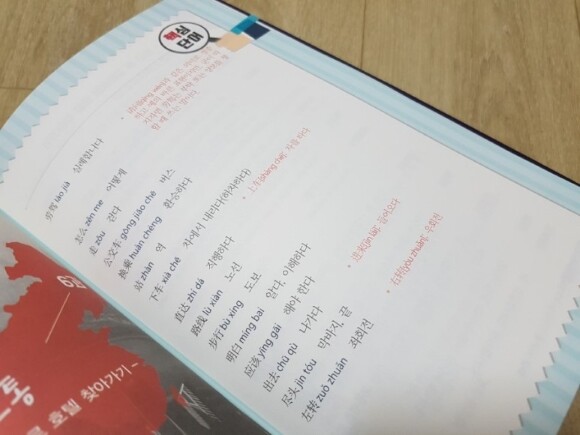 핵심
단어
劳驾 láo jià 실례합니다
怎么 zěn me 어떻게
走 zǒu 걷다
公交车 gōng jiāo chē 버스
换乘 huàn chéng 환승하다
站 zhàn 역
下车 xià chē 차에서 내리다(하차하다)
• 上车(shàng chē): 차를 타다
直达 zhí dá 직행하다
路线 lù xiàn 노선
步行 bù xíng 도보
明白 míng bai 알다, 이해하다
应该 yīng gāi 해야 한다
出去 chū qù 나가다
• 进来(jìn lái): 들어오다
尽头 jìn tóu 막바지, 끝
左转 zuǒ zhuǎn 좌회전
• 右转(yòu zhuǎn): 우회전
6
호텔 찾아가기 ~